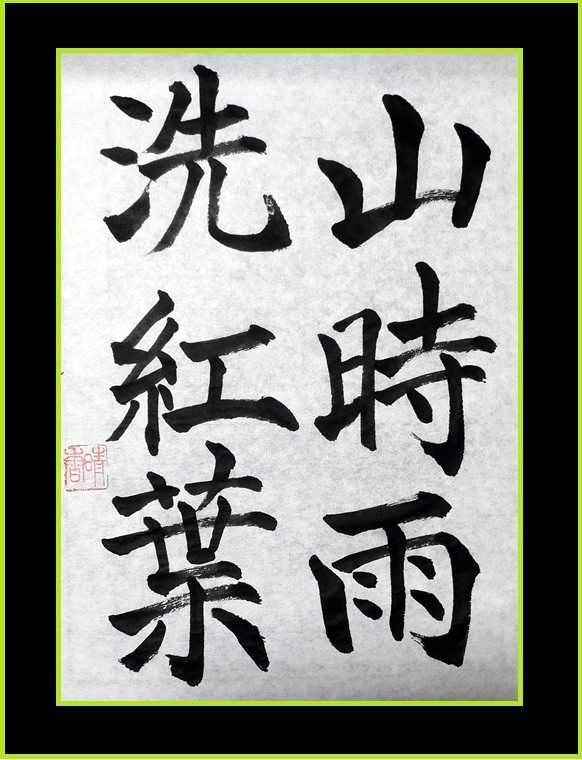 山時雨
洗紅葉
晴香